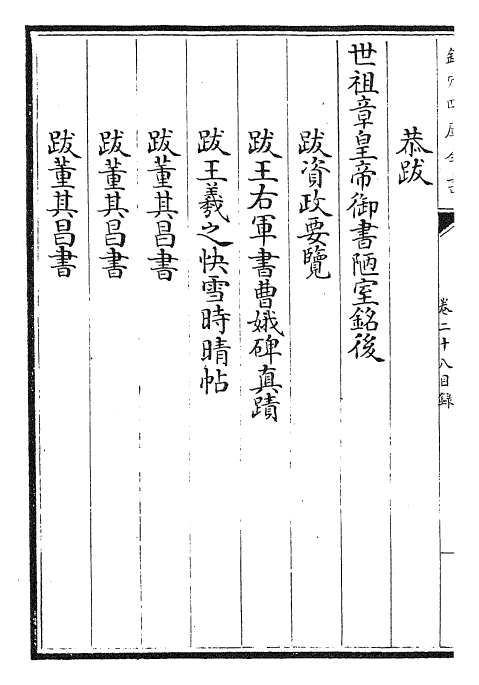 欽定四庫全書
卷二十八目錄
恭跋
世祖章皇帝御書陋室銘後
跋資政要覽
跋王右軍書曹娥碑真蹟
跋王羲之快雪時晴帖
跋董其昌書
跋董其昌書
跋董其昌書